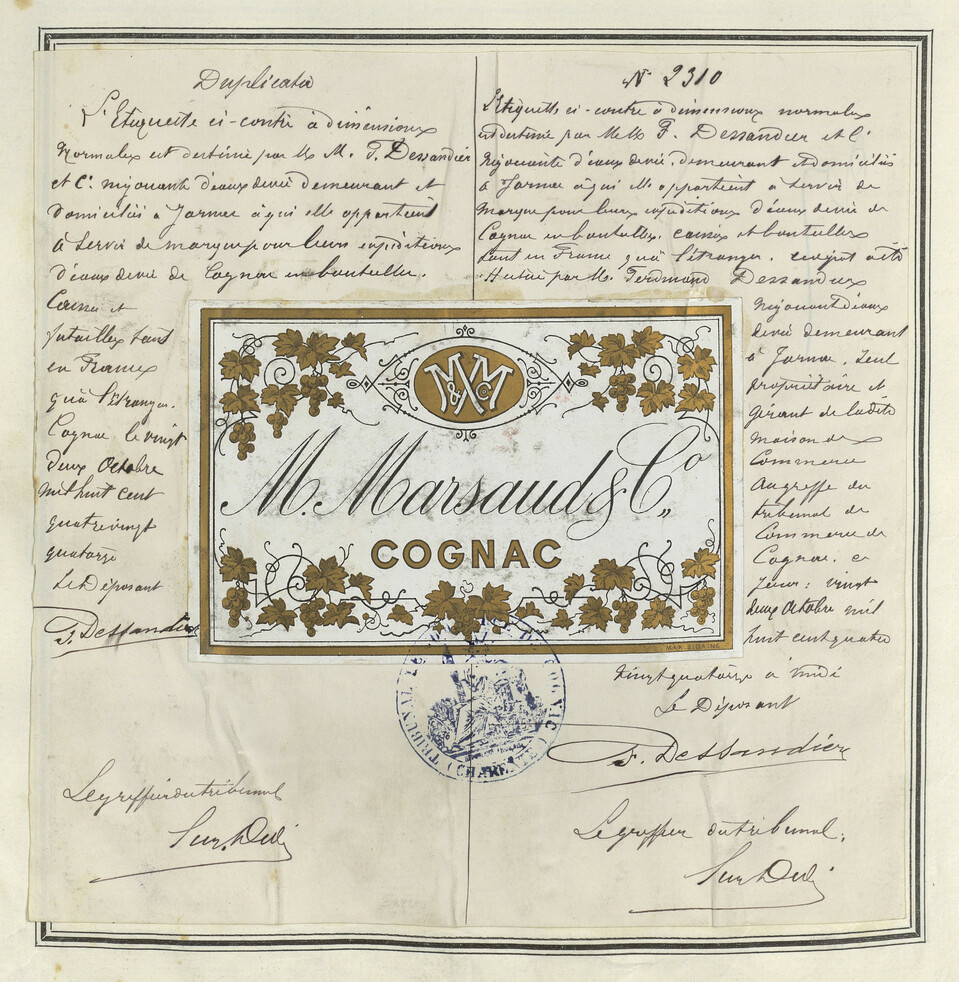 Duplicata
L'Etiquette ci-contre à dimensions
Normales est destiné par M M. F. Dessandier
et Cⁱᵉ négociants d'eaux devie demeurant et
domiciliés à Jarnac à qui elle appartient
à servir de marque pour leurs expéditions
d'eaux devie de Cognac en bouteilles.
Caisses et
futailles tant
en France
qu'à l'étranger.
Cognac, le vingt
deux Octobre
mil huit cent
quatrevingt
quatorze
Le Déposant
F. Dessandier
Le greffier du tribunal
N° 2310
Etiquette ci-contre à dimensions normales
est destiné par F. Dessandier et Cⁱᵉ
Négociants d'eaux devie, demeurant et domiciliés
à Jarnac à qui elle appartient à servir de
marque pour leurs expéditions d'eaux devie de
Cognac en bouteilles, caisses et bouteilles
tant en France qu'à l'étranger. a été
par M. Ferdinand Dessandier
Négociant d'eaux
devie demeurant
à Jarnac. Seul
propriétaire et
gérant de ladite
maison de
Commerce
Au greffe du
tribunal de
Commerce de
Cognac, ce
jour: vingt
deux Octobre mil
huit cent quatre
vingt quatorze à midi
Le Déposant
F. Dessandier
Le greffier du tribunal.
M & Cº M
M. Marsaud & Cº
COGNAC
TRIBUNAL DE COGNAC (CHARENTE)